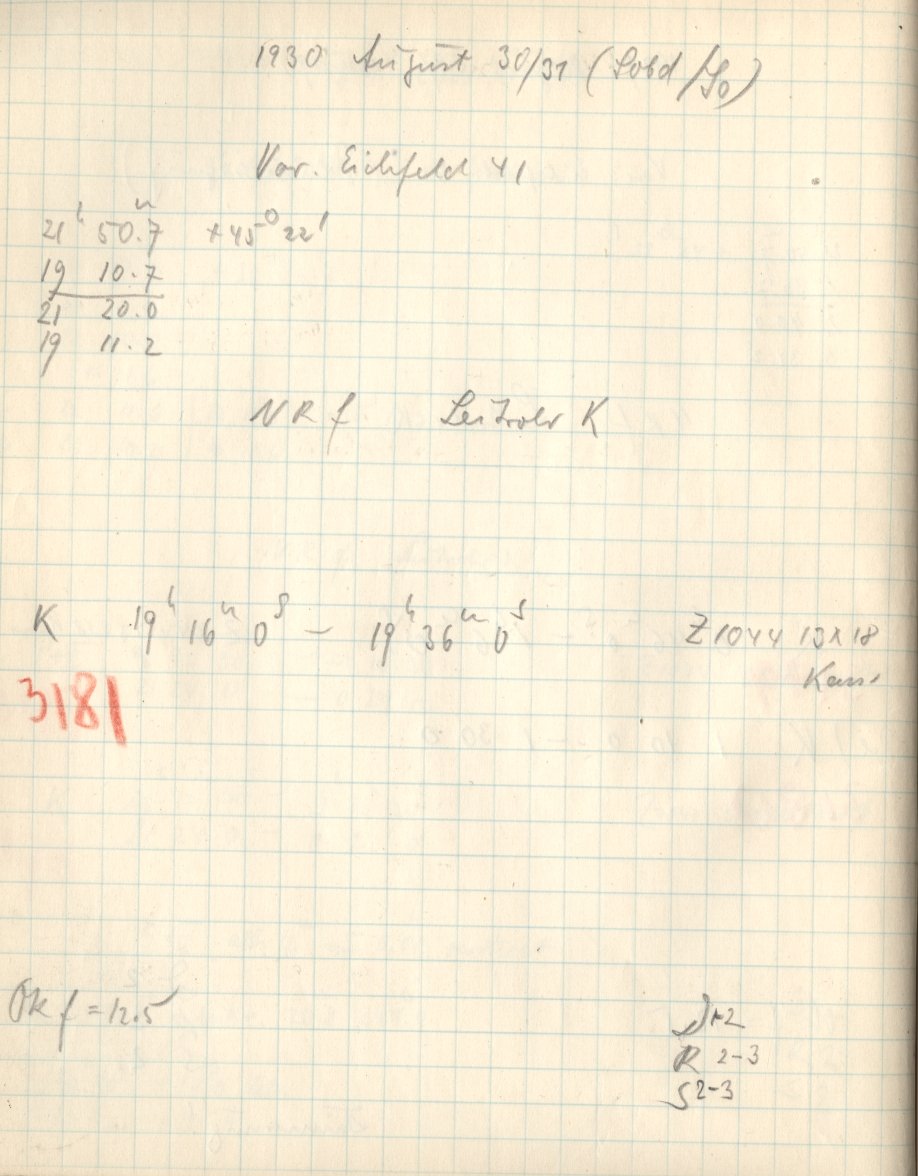 1930 August 30/31 (Sobd/So)
Var. Eichfeld 41
21ʰ 50.7ᵐ +45° 22'
19 10.7
21 20.0
19 11.2
NRf Leitrohr K
K 19ʰ 16ᵐ 0ˢ – 19ʰ 36ᵐ 0ˢ Z 1044 13x18
Kass.
3181
Ok f = 12.5
1-2
R 2-3
S 2-3